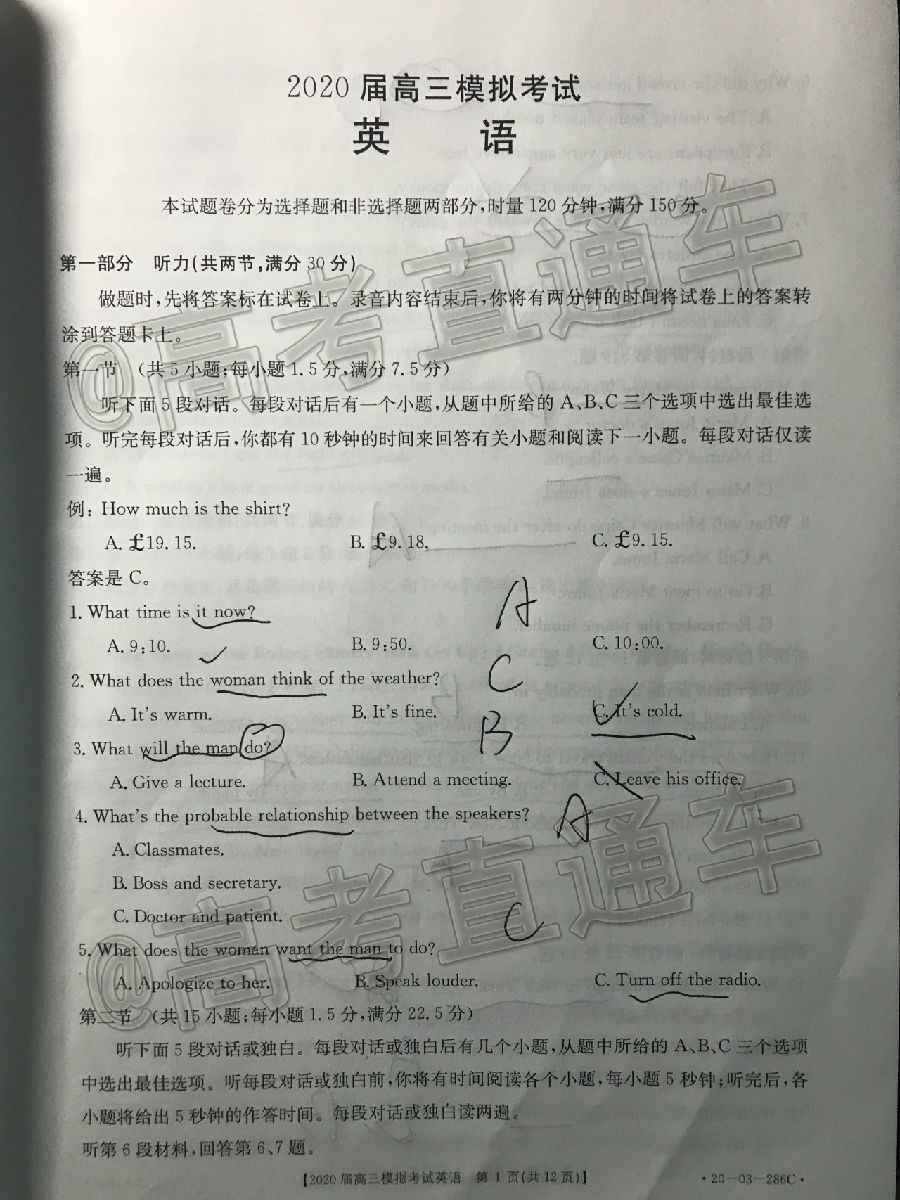 2020届高三模拟考试
英 语
本试题卷分为选择题和非选择题两部分,时量120分钟,满分150分。
第一部分 听力(共两节,满分30分)
做题时,先将答案标在试卷上。录音内容结束后,你将有两分钟的时间将试卷上的答案转
涂到答题卡上。
第一节 (共5小题;每小题1.5分,满分7.5分)
听下面5段对话。每段对话后有一个小题,从题中所给的A、B、C三个选项中选出最佳选
项。听完每段对话后,你都有10秒钟的时间来回答有关小题和阅读下一小题。每段对话仅读
一遍。
例: How much is the shirt?
A. £19.15. B. £9.18. C. £9.15.
答案是C。
1. What time is it now? A
A. 9:10. B. 9:50. C. 10:00.
2. What does the woman think of the weather? C
A. It's warm. B. It's fine. C. It's cold.
3. What will the man do? B
A. Give a lecture. B. Attend a meeting. C. Leave his office.
4. What's the probable relationship between the speakers? A
A. Classmates.
B. Boss and secretary.
C. Doctor and patient.
5. What does the woman want the man to do? C
A. Apologize to her. B. Speak louder. C. Turn off the radio.
第二节 (共15小题;每小题1.5分,满分22.5分)
听下面5段对话或独白。每段对话或独白后有几个小题,从题中所给的A、B、C三个选项
中选出最佳选项。听每段对话或独白前,你将有时间阅读各个小题,每小题5秒钟;听完后,各
小题将给出5秒钟的作答时间。每段对话或独白读两遍。
听第6段材料,回答第6、7题。
【2020届高三模拟考试英语 第1页(共12页)】 ·20-03-286C·
@高考直通车
@高考直通车